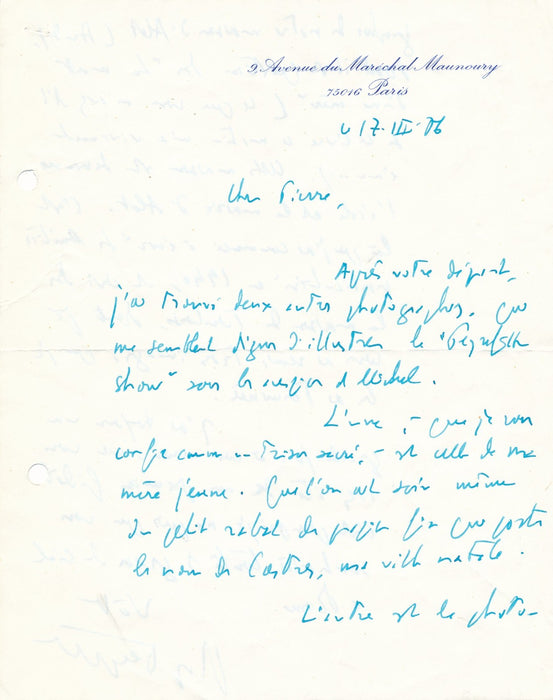 9, Avenue du Maréchal Maunoury
75016 Paris
17-III-86
Cher Pierre,
Après votre départ,
j'ai trouvé deux autres photographies, que
me semblent dignes d'illustrer le "Peyrefitte
show" sous la caméra de Michel.
L'une, - que je vous
confie comme un trésor sacré, - est celle de ma
mère jeune. Que l'on ait soin même
du petit rabat de papier fin que porte
le nom de Castres, ma ville natale.
L'autre est la photo-